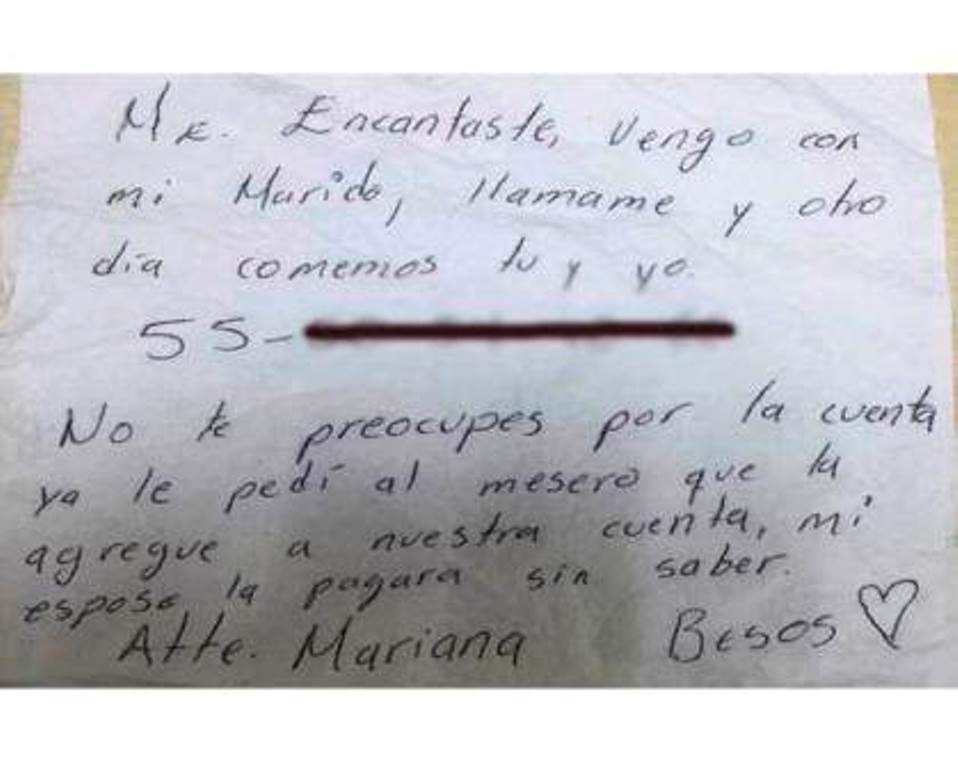 Me. Encantaste, Vengo con
mi Marido, llamame y otro
día comemos tu y yo.
55-
No te preocupes por la cuenta
ya le pedí al mesero que la
agregue a nuestra cuenta, mi
esposo, la pagara sin saber.
Atte. Mariana Besos ♡